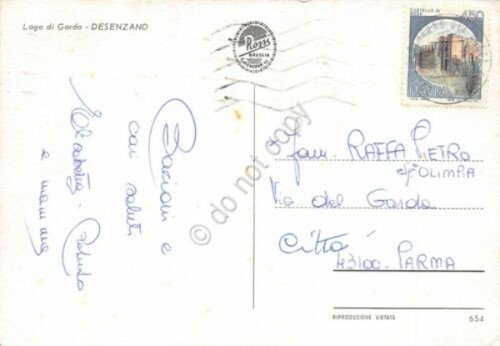 Lago di Garda - DESENZANO
Ross
BRESCIA
CASTELLO DI
450
ITALIA
Bacioni e
cari saluti
Elisabetta - Roberto
e mamma
Fam. RAFFA PIETRO
c/o OLIMPIA
Via del Garda
Città
43100 - PARMA
© do not copy
RIPRODUZIONE VIETATA
654